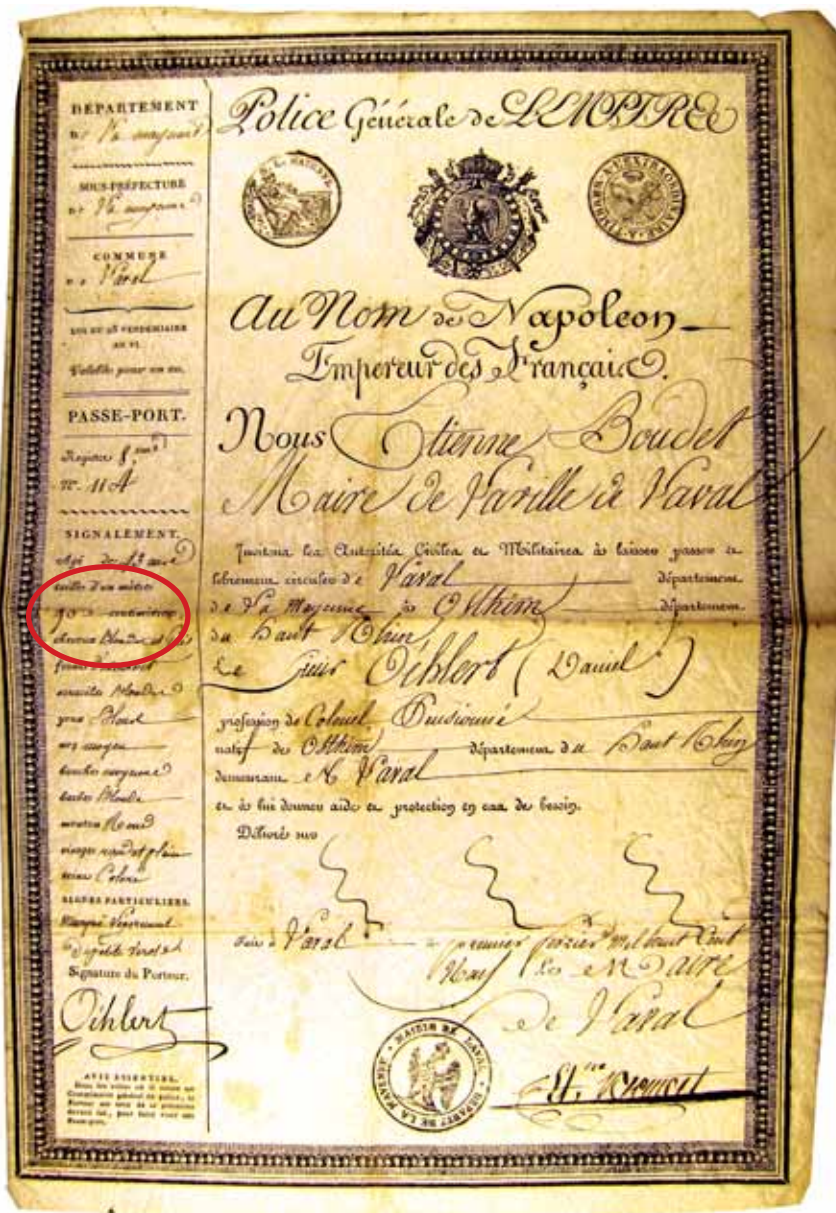 DÉPARTEMENT
de la mayenne
SOUS-PRÉFECTURE
de la mayenne
COMMUNE
de Laval
LOI DU 28 VENDEMIAIRE
AN VI.
Valable pour un an.
PASSE-PORT.
Registre
N°. 114
SIGNALEMENT.
Agé de ans
taille d'un mètre
90 centimètres
cheveux Blonds et
front
sourcils Blonds
yeux Bleus
nez moyen
bouche moyenne
barbe Blonde
menton Rond
visage rond et plein
teint Coloré
SIGNES PARTICULIERS.
Marqué légèrement
De petite vérole
Signature du Porteur.
Oehlert
AVIS ESSENTIEL.
Dans les villes où il existe un
Commissaire général de police, le
Porteur sera tenu de se présenter
devant lui, pour faire viser son
Passe-port.
Police Générale de L'EMPIRE
Au Nom de Napoleon
Empereur des Français.
Nous Etienne Boudet
Maire de la ville de Laval
Invitons les Autorités Civiles et Militaires à laisser passer et
librement circuler de Laval département
de La Mayenne à Osthim département
du haut Rhin
Le Sieur Oehlert (Daniel)
profession de Colonel Pensionné
natif de Osthim département du haut Rhin
demeurant à Laval
et à lui donner aide et protection en cas de besoin.
Délivré sur
Fait à Laval le premier février Mil huit Cent
Neuf le Maire
De Laval
MAIRIE DE LAVAL
DÉPART. DE LA MAYENNE